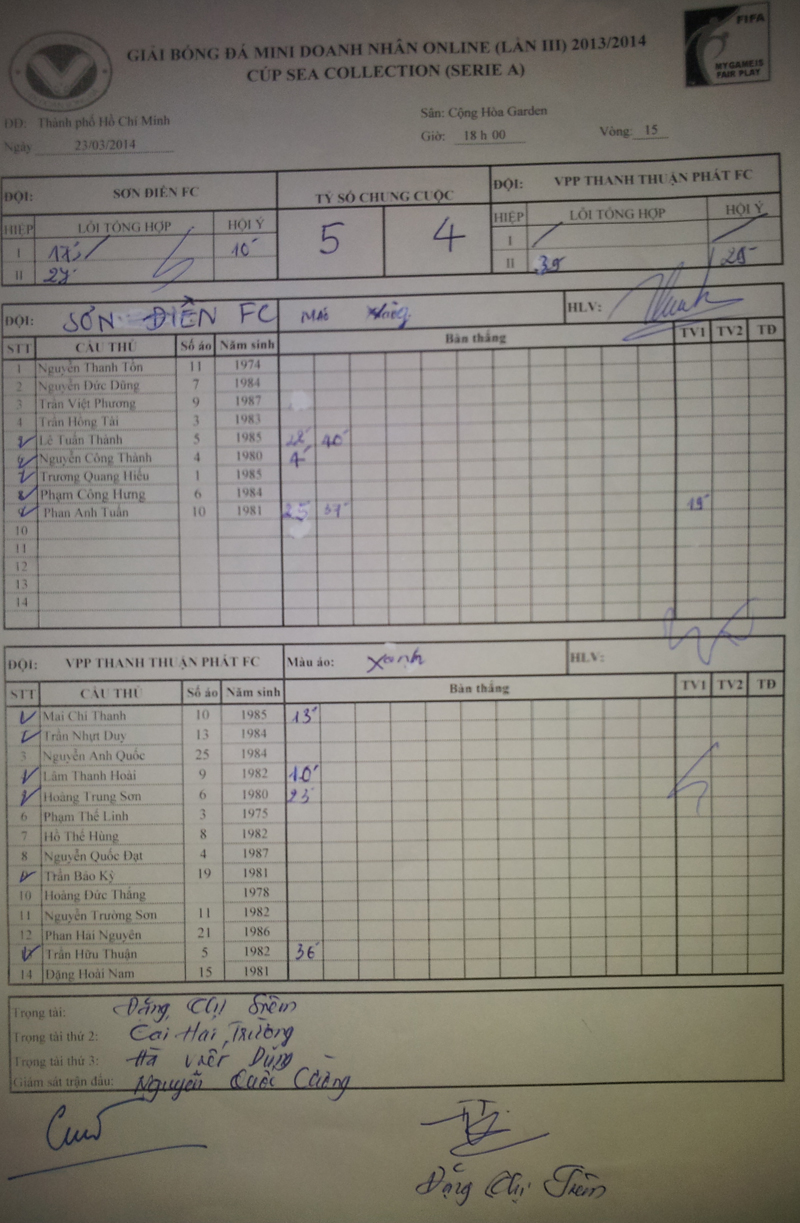 FIFA
MYGAMEIS
FAIR PLAY
GIẢI BÓNG ĐÁ MINI DOANH NHÂN ONLINE (LẦN III) 2013/2014
CÚP SEA COLLECTION (SERIE A)
ĐĐ: Thành phố Hồ Chí Minh
Sân: Cộng Hòa Garden
Ngày 23/03/2014
Giờ: 18 h 00 Vòng: 15
ĐỘI: SƠN ĐIỀN FC TỶ SỐ CHUNG CUỘC ĐỘI: VPP THANH THUẬN PHÁT FC
HIỆP LỖI TỔNG HỢP HỘI Ý 5 4 HIỆP LỖI TỔNG HỢP HỘI Ý
I 10' I
II II 39' 25'
ĐỘI: SƠN ĐIỀN FC HLV:
STT CẦU THỦ Số áo Năm sinh Bàn thắng TV1 TV2 TĐ
1 Nguyễn Thanh Tồn 11 1974
2 Nguyễn Đức Dũng 7 1984
3 Trần Việt Phương 9 1987
4 Trần Hồng Tài 3 1983
Lê Tuấn Thành 5 1985 40'
Nguyễn Công Thành 4 1980 4'
Trương Quang Hiếu 1 1985
Phạm Công Hưng 6 1984
Phan Anh Tuấn 10 1981 25' 19'
10
11
12
13
14
ĐỘI: VPP THANH THUẬN PHÁT FC Màu áo: Xanh HLV:
STT CẦU THỦ Số áo Năm sinh Bàn thắng TV1 TV2 TĐ
Mai Chí Thanh 10 1985 13'
Trần Nhựt Duy 13 1984
3 Nguyễn Anh Quốc 25 1984
Lâm Thanh Hoài 9 1982 10'
Hoàng Trung Sơn 6 1980 23'
6 Phạm Thế Linh 3 1975
7 Hồ Thế Hùng 8 1982
8 Nguyễn Quốc Đạt 4 1987
Trần Bảo Kỳ 19 1981
10 Hoàng Đức Thắng 1978
11 Nguyễn Trường Sơn 11 1982
12 Phan Hải Nguyên 21 1986
Trần Hữu Thuận 5 1982 36'
14 Đặng Hoài Nam 15 1981
Trọng tài: Đặng
Trọng tài thứ 2: Cai Hải Trường
Trọng tài thứ 3: Hà Việt Dũng
Giám sát trận đấu: Nguyễn Quốc
Đặng